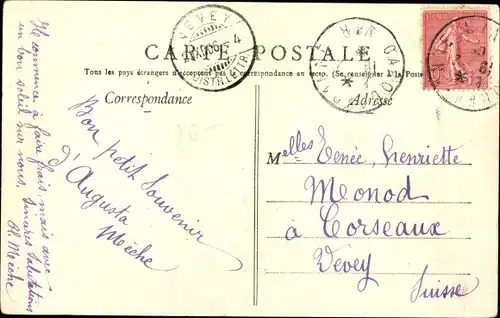 CARTE POSTALE
Tous les pays étrangers n'acceptent pas la correspondance au recto. (Se renseigner à la Poste)
Correspondance
Adresse
VEVEY
DISTR. LETTR.
Il commence à faire frais, mais avec
un bon soleil sur nous.
Sincères Salutations
Mèche
Bon petit Souvenir
d'Augusta
Mèche
Melles Henriette
Monod
à Corseaux
Vevey
Suisse